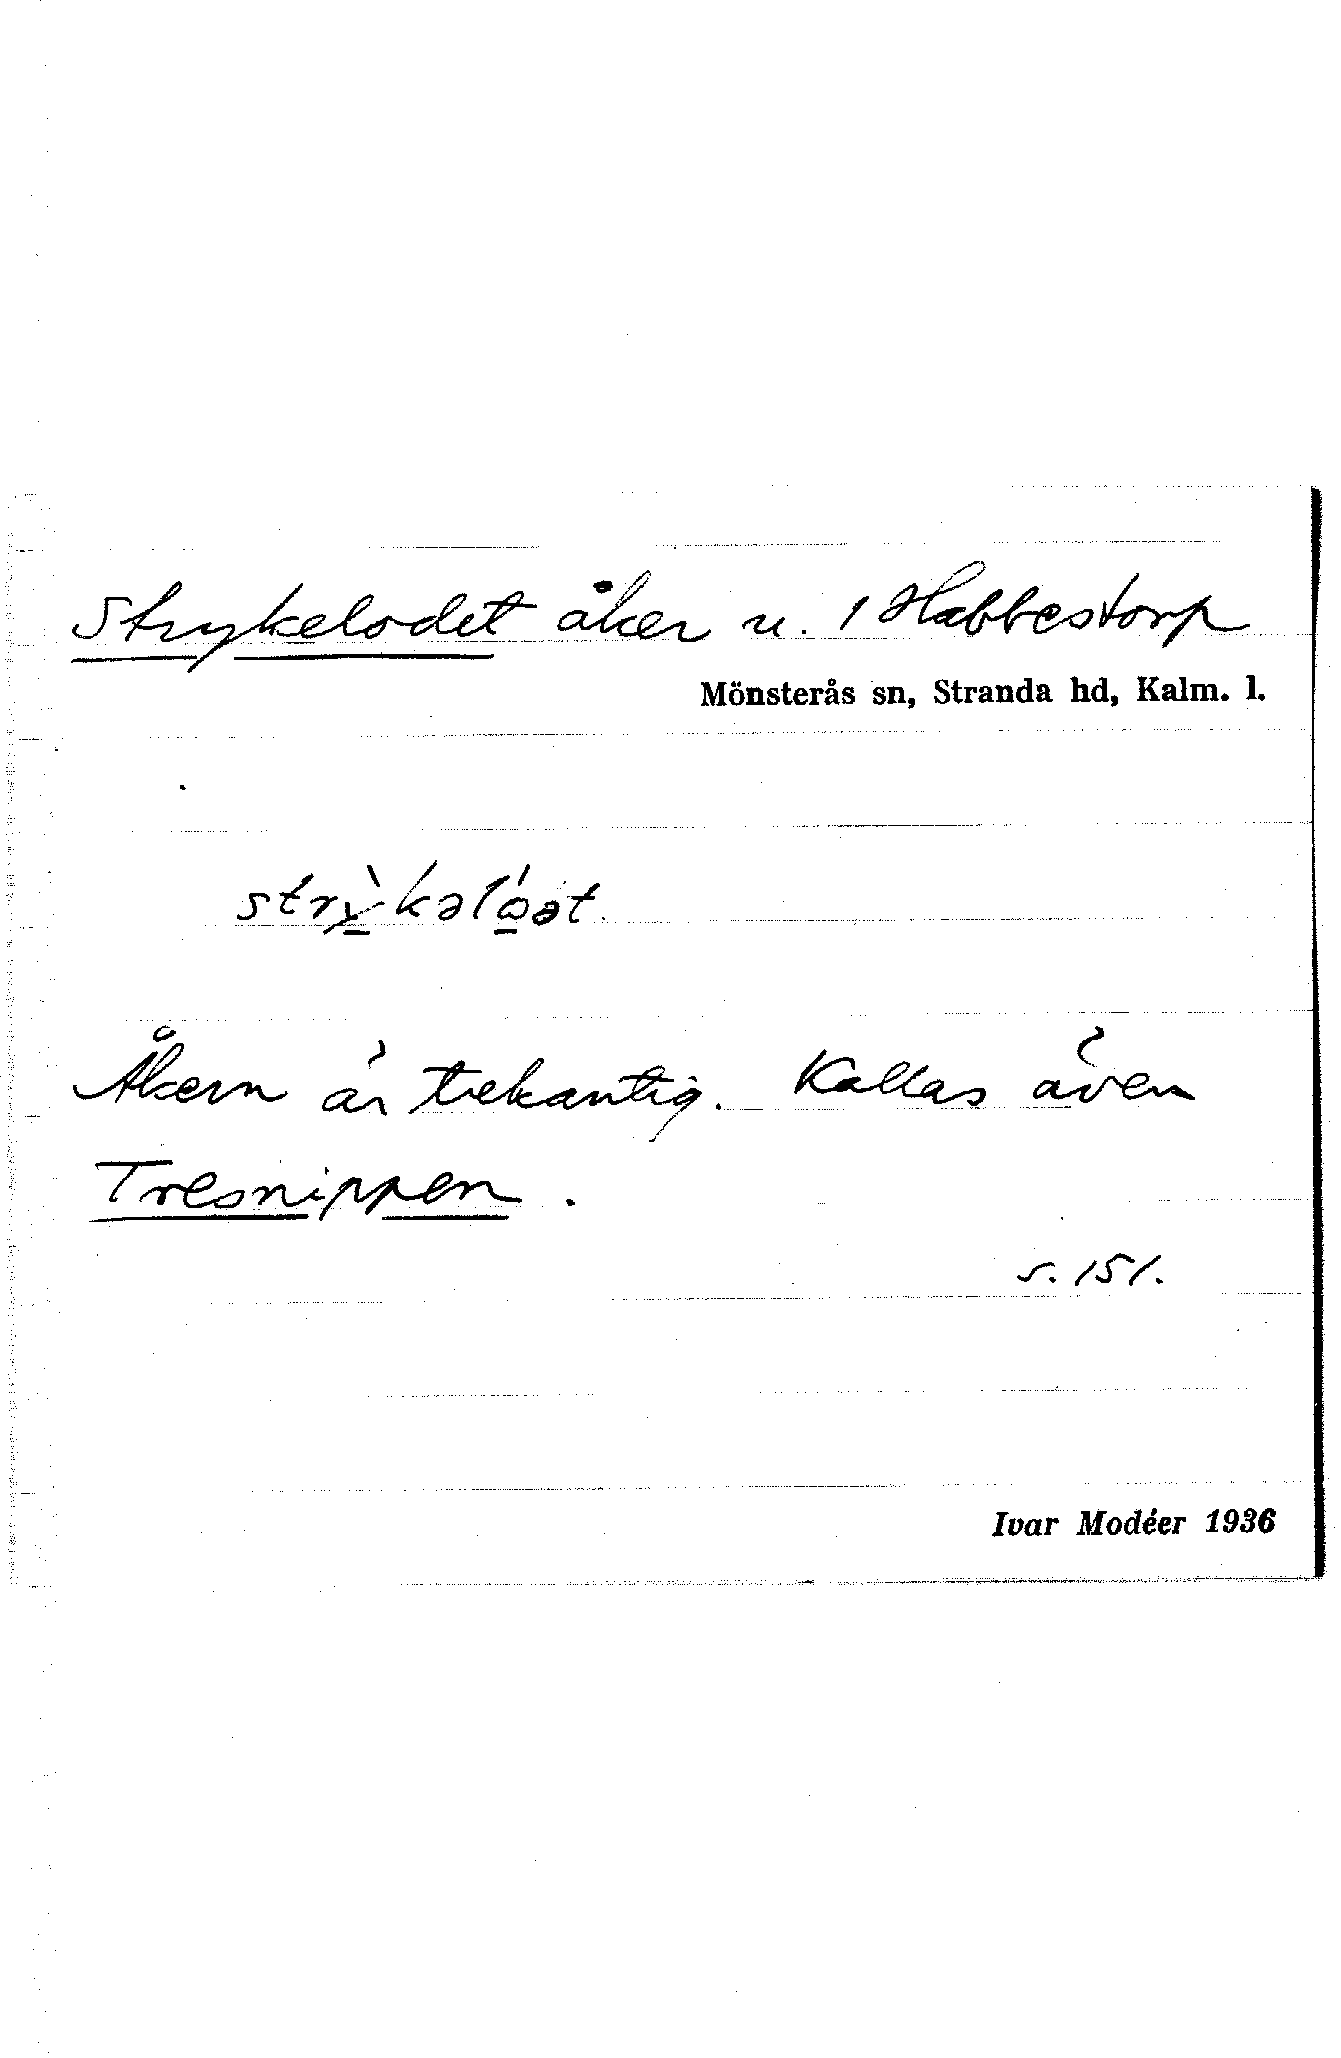 Strykelodet åker u. 1 Habbestorp
Mönsterås sn, Stranda hd, Kalm. l.
strỳkəlóət
Åkern är trekantig. Kallas även
Tresnippen.
s. 151.
Ivar Modéer 1936